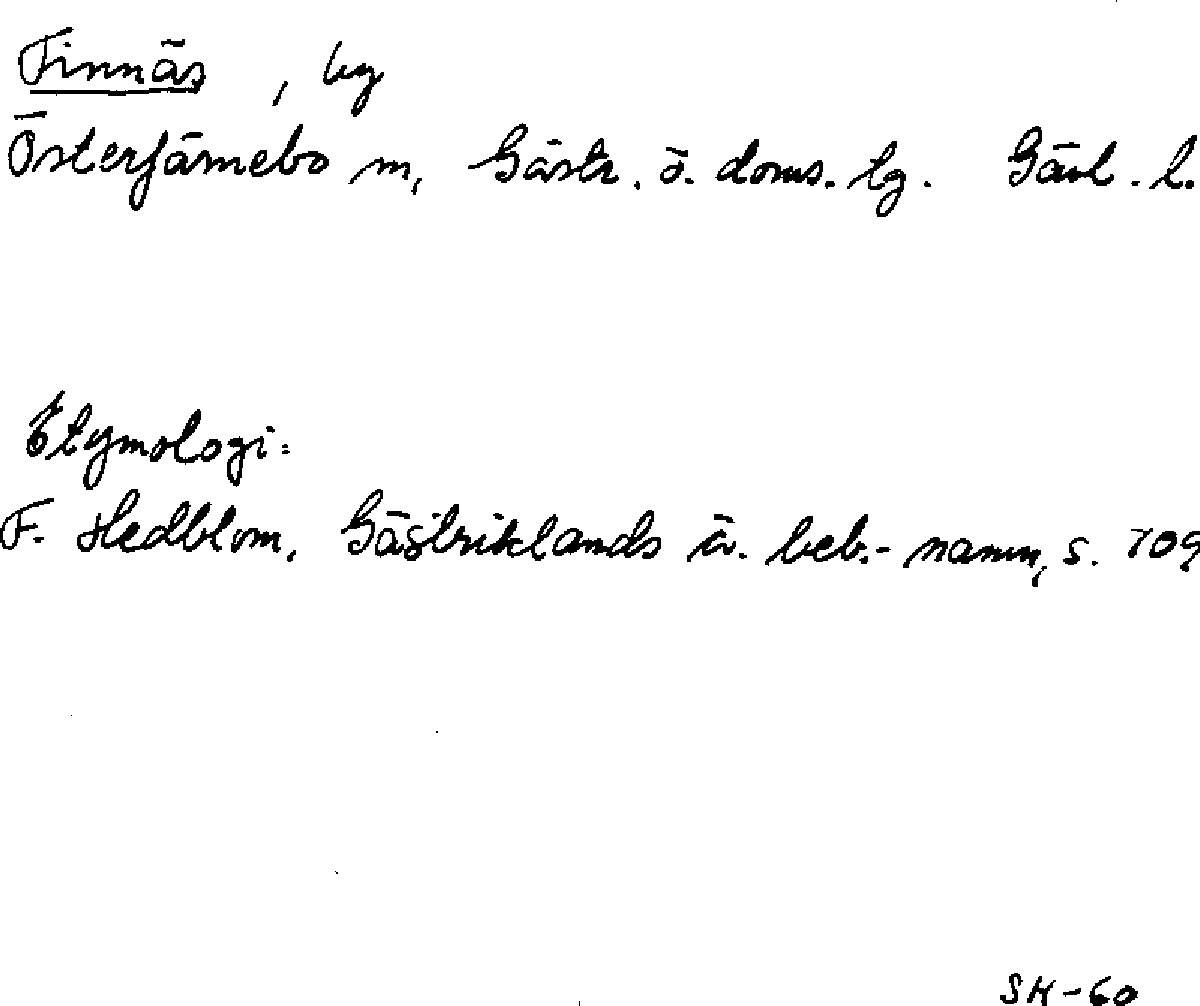 Finnäs, by
Österfärnebo sn, Gästr. ö. doms. lg. Gävl. l.
Etymologi:
F. Hedblom, Gästriklands ä. beb.-namn, s. 709
SK-60